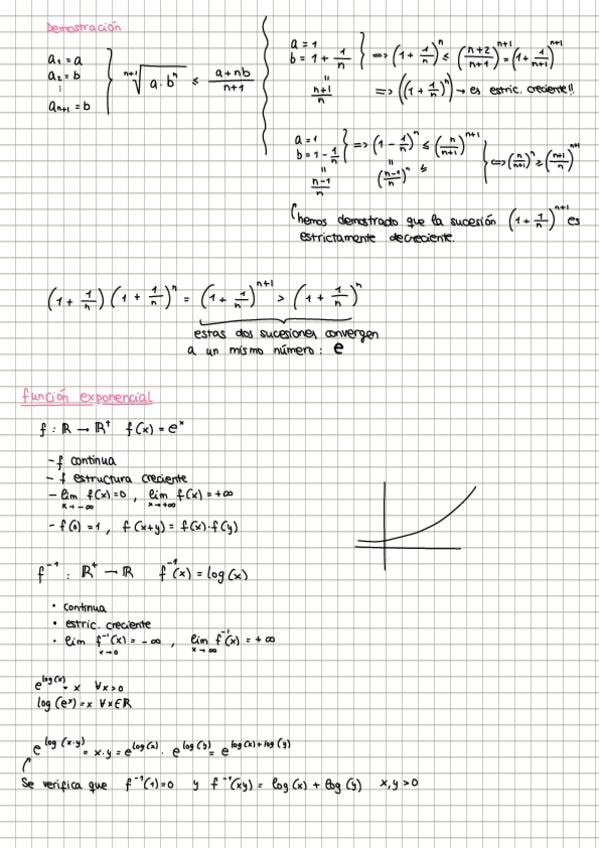 Demostración
a₁ = a
a₂ = b
⋮
aₙ₊₁ = b
ⁿ⁺¹√(a·bⁿ) ≤ (a+nb)/(n+1)
a = 1
b = 1 + 1/n
=> (1 + 1/n)ⁿ ≤ ((n+2)/(n+1))ⁿ⁺¹ = (1 + 1/(n+1))ⁿ⁺¹
"
(n+1)/n
=> ((1 + 1/n)ⁿ) → es estric. creciente!!
a = 1
b = 1 - 1/n
=> (1 - 1/n)ⁿ ≤ (n/(n+1))ⁿ⁺¹
"
(n-1)/n
"
((n-1)/n)ⁿ ≤
<=> (n/(n+1))ⁿ ≥ ((n+1)/n)ⁿ⁺¹
hemos demostrado que la sucesión (1 + 1/n)ⁿ⁺¹ es
estrictamente decreciente.
(1 + 1/n)(1 + 1/n)ⁿ = (1 + 1/n)ⁿ⁺¹ > (1 + 1/n)ⁿ
estas dos sucesiones convergen
a un mismo número: e
función exponencial
f : ℝ → ℝ⁺ f(x) = eˣ
- f continua
- f estructura creciente
- lim f(x) = 0 , lim f(x) = +∞
x → -∞ x → +∞
- f(0) = 1 , f(x+y) = f(x)·f(y)
f⁻¹ : ℝ⁺ → ℝ f⁻¹(x) = log(x)
• continua
• estric. creciente
• lim f⁻¹(x) = -∞ , lim f⁻¹(x) = +∞
x → 0 x → ∞
e^log(x) = x ∀x>0
log(eˣ) = x ∀x∈ℝ
e^log(x·y) = x·y = e^log(x) · e^log(y) = e^log(x)+log(y)
Se verifica que f⁻¹(1)=0 y f⁻¹(xy) = log(x) + log(y) x,y>0